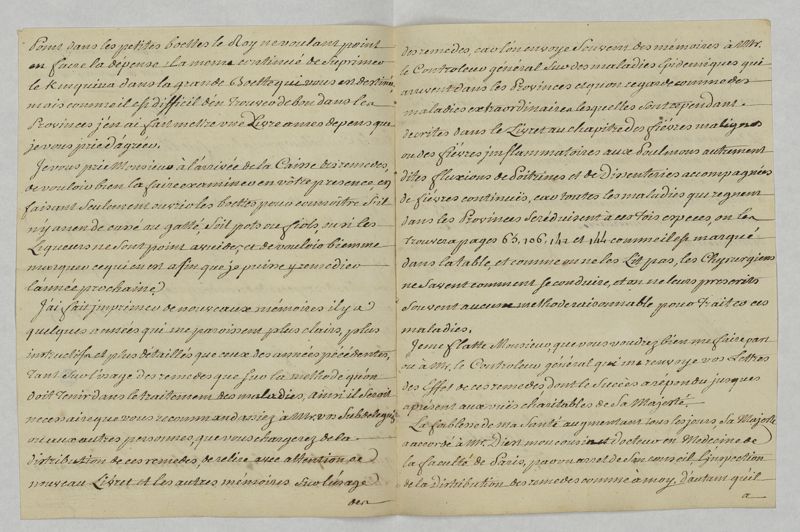 Point dans les petites boettes le Roy ne voulant point
en faire la depense. La meme continué de Suprimer
le Kinquina dans la grande Boette qui vous est destinée
mais comme il est difficile d'en trouver de bon dans les
Provinces j'en ai fait mettre une Livre a mes depens que
je vous prie d'agreer.
Je vous prie Monsieur à l'arrivée de la Caisse des remedes,
de vouloir bien la faire examiner en vôtre presence, en
faisant Seulement ouvrir les boettes pour connoître S'il
n'y a rien de cassé ou gatté, Soit pots ou fiols, ou si les
Liqueurs ne Sont point et de vouloir bien me
marquer ce qui en est afin que je puisse y remedier
l'année prochaine.
J'ai fait imprimer de nouveaux mémoires il y a
quelques années qui me paroissent plus clairs, plus
instructifs et plus détaillés que ceux des années précédentes,
tant Sur l'usage des remedes que Sur la methode qu'on
doit tenir dans le traitement des maladies, ainsi il Seroit
necessaire que vous recommandassiez à Mrs. vos Subdelegués
ou aux autres personnes, que vous chargerez de la
distribution de ces remedes, de relire avec attention, ce
nouveau Livret et les autres mémoires Sur l'usage
des
des remedes, car l'on envoye Souvent des mémoires à Mr.
le Controleur général Sur des maladies Epidemiques qui
arrivent dans les Provinces et qu'on regarde comme des
maladies extraordinaires lesquelles Sont cependant
decrites dans le Livret au chapitre des fiévres malignes
ou des fiévres inflammatoires aux Poulmons autrement
dites fluxions de Poitrines et de Dissenteries accompagnées
de fiévres continuës, car toutes les maladies qui regnent
dans les Provinces Se réduisent à ces trois especes, on les
trouvera pages 65, 106, 141 et 144 comme il est marqué
dans la table, et comme on ne les Lit pas, les Chyrurgiens
ne Savent comment Se conduire, et on ne leurs prescrits
Souvent aucune methode raisonnable pour traiter ces
maladies.
Je me flatte Monsieur, que vous voudrez bien me faire part
ou à Mr. le Controleur général qui me renvoye vos Lettres
des Effets de ces remedes dont le Succès a repondu jusques
apresent aux vuës charitables de Sa Majesté
La foiblesse de ma Santé augmentant tous les jours, Sa Majesté
a accordé à Mr. Diest mon cousin et Docteur en Medecine de
la faculté de Paris, par un arrest de Son conseil L'inspection
de la distribution des remedes comme à moy, d'autant qu'il
a